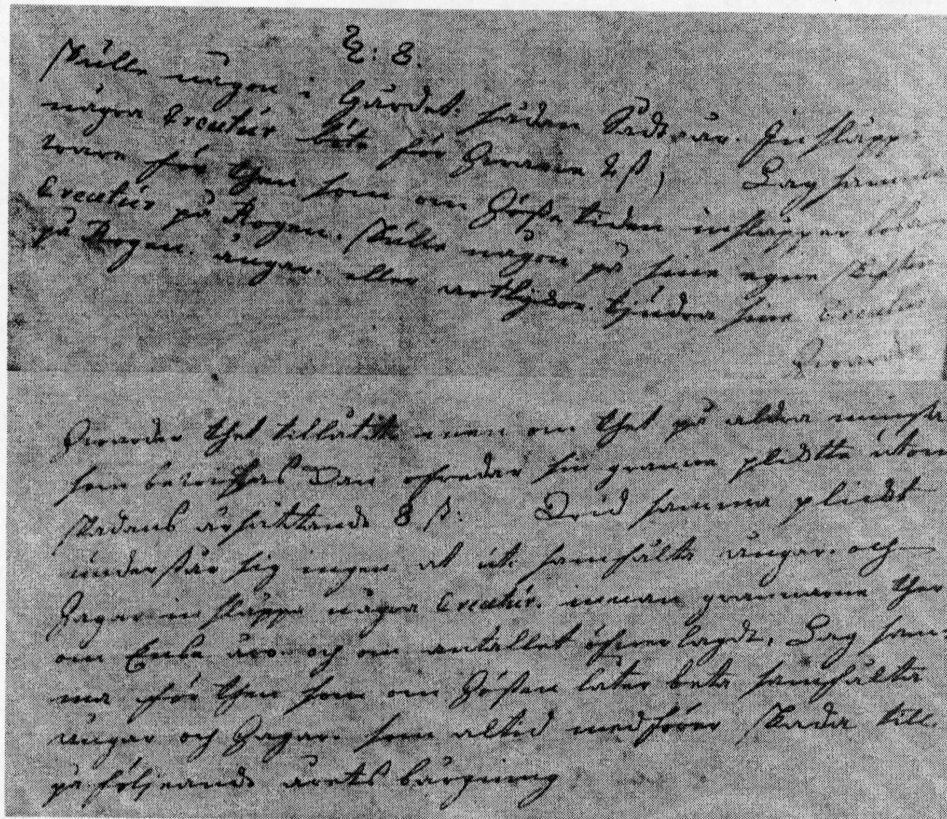 §: 8.
Skulle någon i Gärdet, sedan Sådt är. Insläppa
några Creatur böte för hvarie 2 ß, Lag samma
vare för then som om Höste tiden insläpper lösa
Creatur på Rogen. Skulle någon på sine egne Skifter
på Rogen. ängar. eller tjudra sine Creatur
hvarder
hvarder thet tillåtit men om thet på aldra minsta
som bevises han ofredar sin granne plickte utom
Skadans ärsättande 8 ß: Vid samma plickt
understår sig ingen at uti samfälta ängar. och
Hagar insläppa några Creatur. innan grannarne ther
om Ense äro. och om antallet öfverlagdt, Lag sam-
ma för then som om Hösten låter beta samfälta
ängar och Hagar. som altid medförer Skada till
påföljande årets bärgning